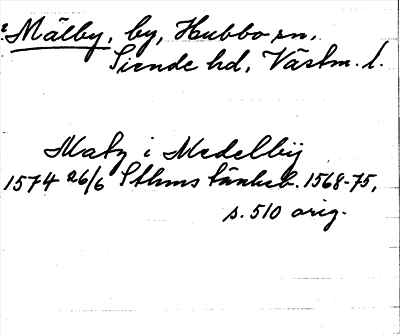 Mälby, by, Hubbo sn,
Siende hd, Västm. l.
Matz i Medelbÿ
1574 26/6 Sthms tänkeb. 1568-75,
s. 510 orig.